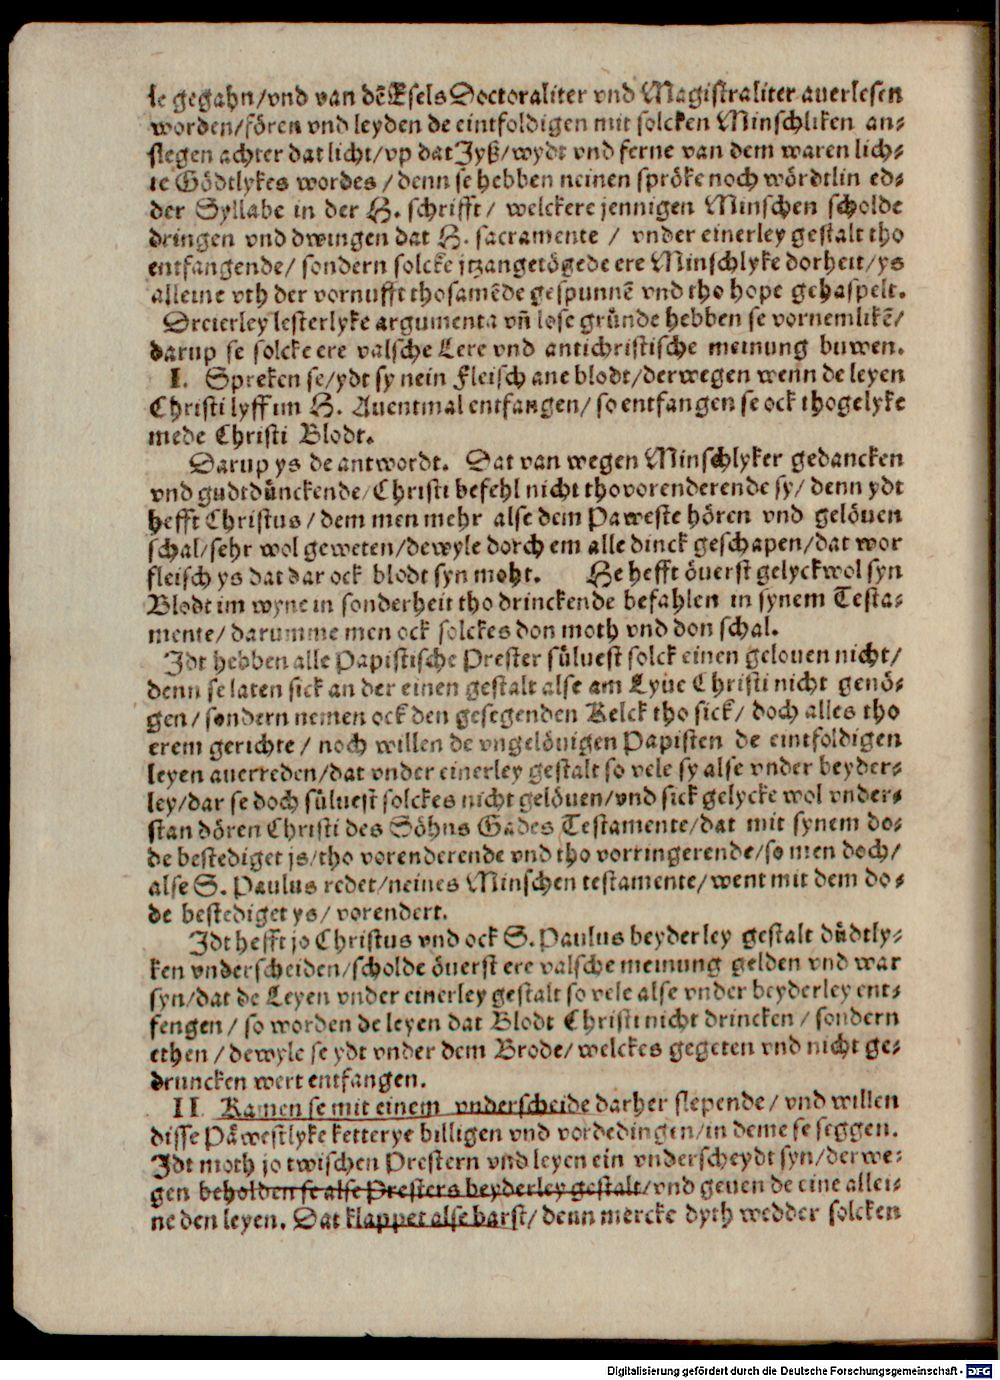 le gegahn/vnd van dē Esels Doctoraliter vnd Magistraliter auerlesen
worden/fören vnd leyden de eintfoldigen mit solcken Minschliken an-
slegen achter dat licht/vp dat Jyß/wydt vnd ferne van dem waren lich-
te Gödtlykes wordes/denn se hebben neinen spröke noch wördtlin ed-
der Syllabe in der H. schrifft/ welckere jennigen Minschen scholde
dringen vnd dwingen dat H. sacramente / vnder einerley gestalt tho
entfangende/ sondern solcke jtzangetögede ere Minschlyke dorheit/ys
alleine vth der vornufft thosamēde gespunnē vnd tho hope gehaspelt.
Dreierley lesterlyke argumenta vñ lose gründe hebben se vornemlikē/
darup se solcke ere valsche Lere vnd antichristische meinung buwen.
I. Spreken se/ydt sy nein Fleisch ane blodt/derwegen wenn de leyen
Christi lyff im H. Auentmal entfangen/ so entfangen se ock thogelyke
mede Christi Blodt.
Darup ys de antwordt. Dat van wegen Minschlyker gedancken
vnd gudtdünckende/Christi befehl nicht thovorenderende sy/ denn ydt
hefft Christus/dem men mehr alse dem Paweste hören vnd gelöuen
schal/sehr wol geweten/dewyle dorch em alle dinck geschapen/dat wor
fleisch ys dat dar ock blodt syn moht. He hefft öuerst gelyckwol syn
Blodt im wyne in sonderheit tho drinckende befahlen in synem Testa-
mente/darumme men ock solckes don moth vnd don schal.
Jdt hebben alle Papistische Prester süluest solck einen gelouen nicht/
denn se laten sick an der einen gestalt alse am Lyue Christi nicht genö-
gen/sondern nemen ock den gesegenden Kelck tho sick/ doch alles tho
erem gerichte/ noch willen de vngelöuigen Papisten de eintfoldigen
leyen auerreden/dat vnder einerley gestalt so vele sy alse vnder beyder-
ley/dar se doch süluest solckes nicht gelöuen/vnd sick gelycke wol vnder-
stan dören Christi des Söhns Gades Testamente/dat mit synem do-
de bestediget js/tho vorenderende vnd tho vorringerende/so men doch/
alse S. Paulus redet/neines Minschen testamente/went mit dem do-
de bestediget ys/ vorendert.
Jdt hefft jo Christus vnd ock S. Paulus beyderley gestalt düdtly-
ken vnderscheiden/scholde öuerst ere valsche meinung gelden vnd war
syn/dat de Leyen vnder einerley gestalt so vele alse vnder beyderley ent-
fengen/ so worden de leyen dat Blodt Christi nicht drincken/ sondern
ethen/dewyle se ydt vnder dem Brode/welckes gegeten vnd nicht ge-
druncken wert entfangen.
II Kamen se mit einem vnderscheide darher slepende/ vnd willen
disse Päwestlyke ketterye billigen vnd vordedingen/in deme se seggen.
Jdt moth jo twischen Prestern vnd leyen ein vnderscheydt syn/derwe-
gen beholden se alse Presters beyderley gestalt/vnd geuen de eine allei-
ne den leyen. Dat klappet alse barst/ denn mercke dyth wedder solcken
Digitalisierung gefördert durch die Deutsche Forschungsgemeinschaft - DFG